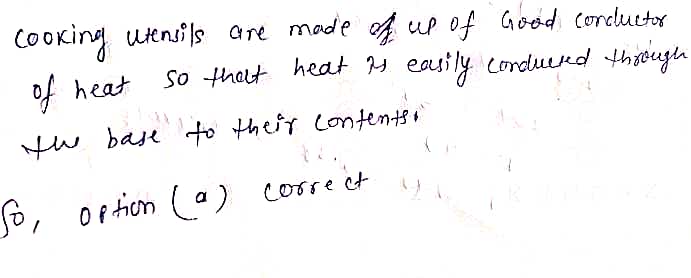 cooking utensils are made of up of Good conductor
of heat so that heat is easily conducted through
the base to their contents.
So, option (a) correct